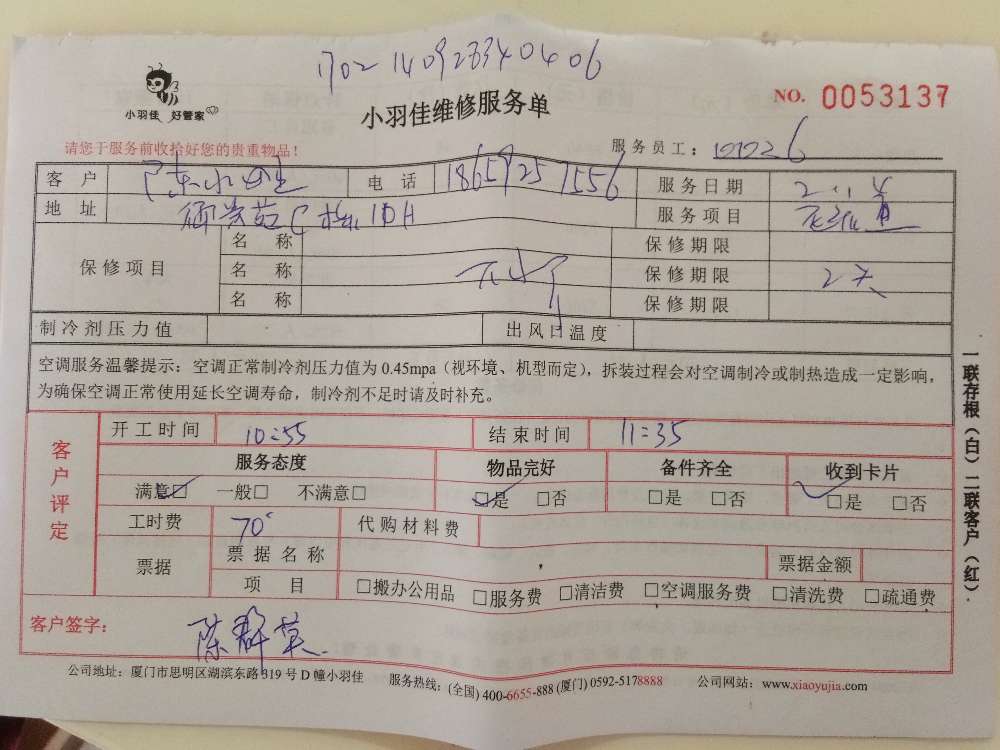 1702 140923340406
小羽佳 好管家
小羽佳维修服务单
NO. 0053137
请您于服务前收拾好您的贵重物品！
服务员工：101026
客户 电话 18659257556 服务日期 2.14
地址 C栋10H 服务项目
保修项目 名称 保修期限
名称 保修期限 2天
名称 保修期限
制冷剂压力值 出风口温度
空调服务温馨提示：空调正常制冷剂压力值为 0.45mpa（视环境、机型而定），拆装过程会对空调制冷或制热造成一定影响，
为确保空调正常使用延长空调寿命，制冷剂不足时请及时补充。
客户评定
开工时间 10:55 结束时间 11:35
服务态度 物品完好 备件齐全 收到卡片
满意☑ 一般□ 不满意□ ☑是 □否 □是 □否 ☑是 □否
工时费 70 代购材料费
票据 票据名称 票据金额
项目 □搬办公用品 □服务费 □清洁费 □空调服务费 □清洗费 □疏通费
客户签字：陈群英
公司地址：厦门市思明区湖滨东路319号D幢小羽佳 服务热线：(全国) 400-6655-888 (厦门) 0592-5178888 公司网站：www.xiaoyujia.com
一联存根（白）二联客户（红）.